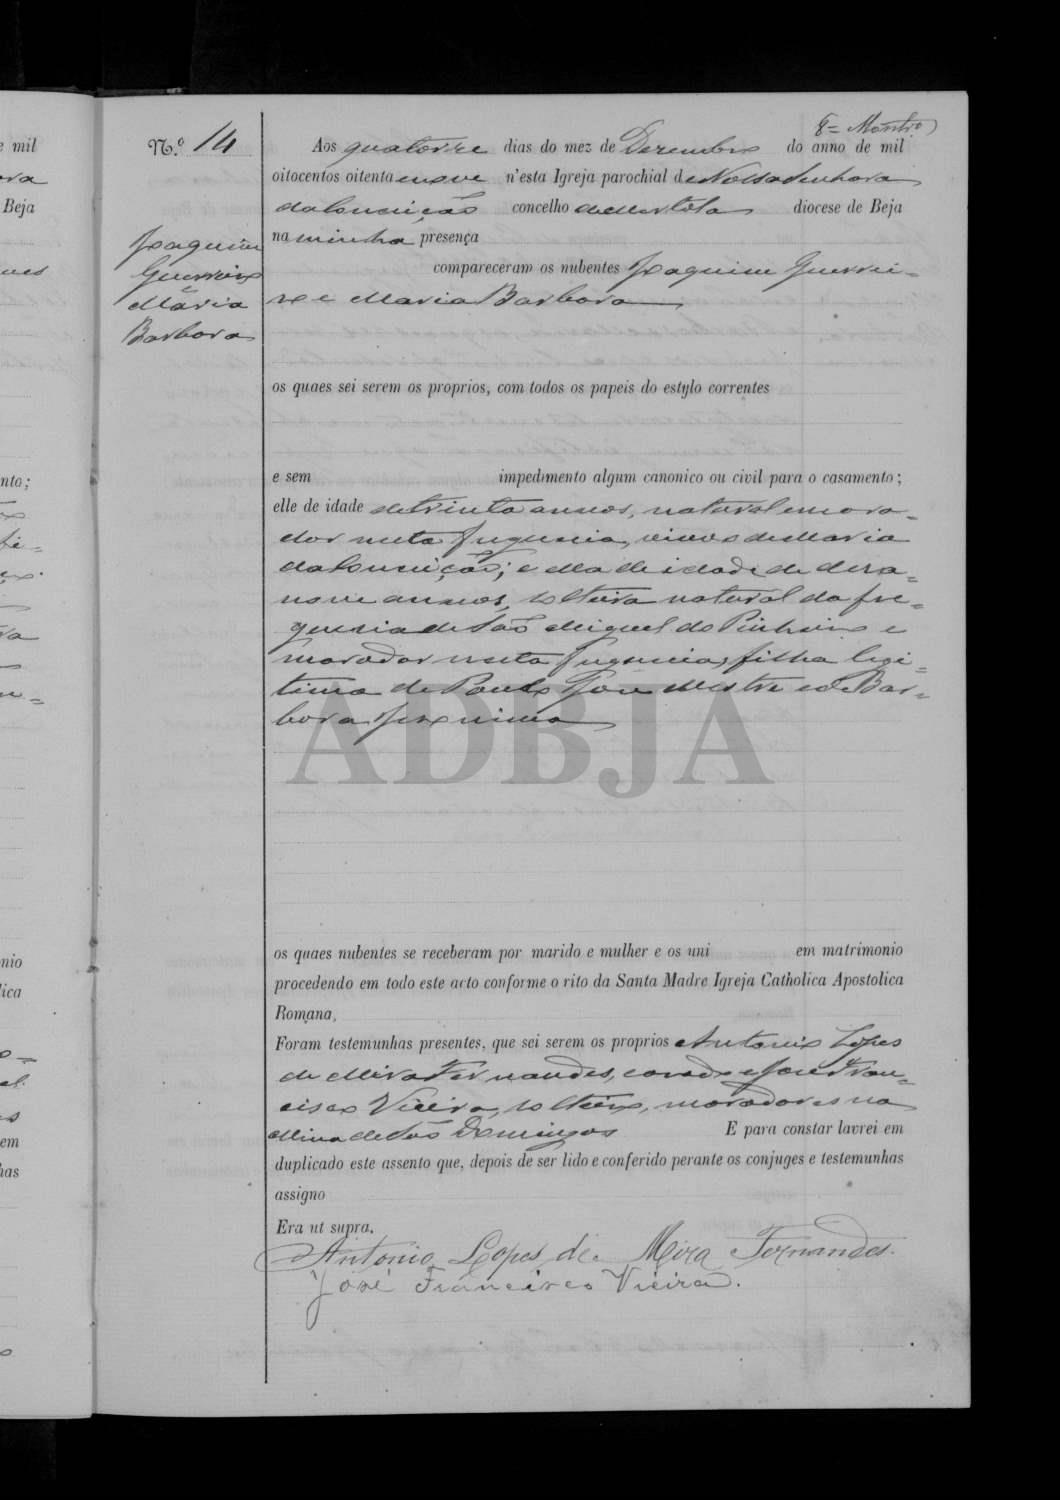 8 =
N.º 14
Aos quatorze dias do mez de Dezembro do anno de mil
oitocentos oitenta e nove n'esta Igreja parochial de Nossa Senhora
da Conceição concelho de Mertola diocese de Beja
na minha presença
compareceram os nubentes Joaquim Guerrei-
ro e Maria Barbora,
Joaquim
Guerreiro
Maria
Barbora
os quaes sei serem os proprios, com todos os papeis do estylo correntes
e sem impedimento algum canonico ou civil para o casamento;
elle de idade de trinta annos, natural e mora-
dor nesta freguesia, viuvo de Maria
da Conceição; e ella de idade de deza-
nove annos, solteira natural da fre-
guesia de São Miguel do Pinheiro e
morador nesta freguesia, filha legi-
tima de Paulo José Mestre e de Bar-
bora
os quaes nubentes se receberam por marido e mulher e os uni em matrimonio
procedendo em todo este acto conforme o rito da Santa Madre Igreja Catholica Apostolica
Romana.
Foram testemunhas presentes, que sei serem os proprios Antonio Lopes
de Mira Fernandes, casado e José Fran-
cisco Vieira, solteiro, moradores na
Mina de São Domingos E para constar lavrei em
duplicado este assento que, depois de ser lido e conferido perante os conjuges e testemunhas
assigno
Era ut supra.
Antonio Lopes de Mira Fernandes.
José Francisco Vieira.
ADBJA
e mil
Beja
nto;
nio
lica
em
has